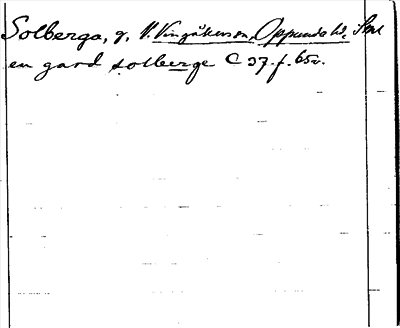 Solberga, g, V. Vingåkers sn, Oppunda hd, Sml
en gard solberge C 37. f. 65v.